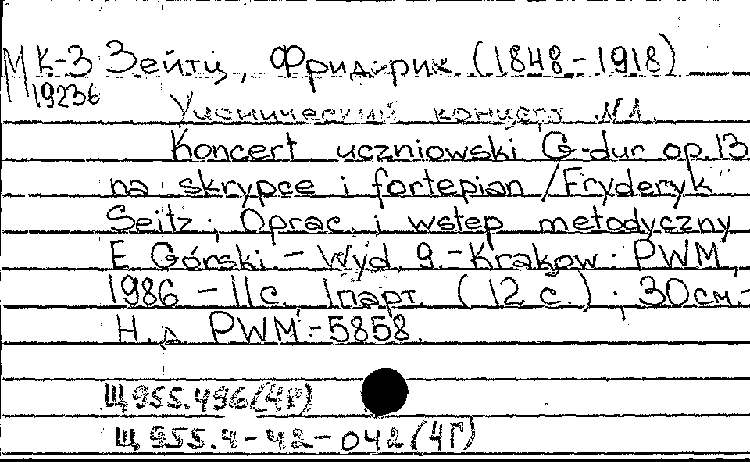 М К-3 Зейтц, Фридерик (1848-1918)
19236
Ученический концерт N1.
Koncert uczniowski G-dur op.13
na skrypce i fortepian / Fryderyk
Seitz; Oprac. i wstep metodyczny
E. Górski. - Wyd. 9. - Krakow: PWM,
1986 - 11с. 1парт. (12 с.); 30см.-
Н.д. PWM-5858.
Щ955.496(4Г)
Щ955.4-42-042(4Г)